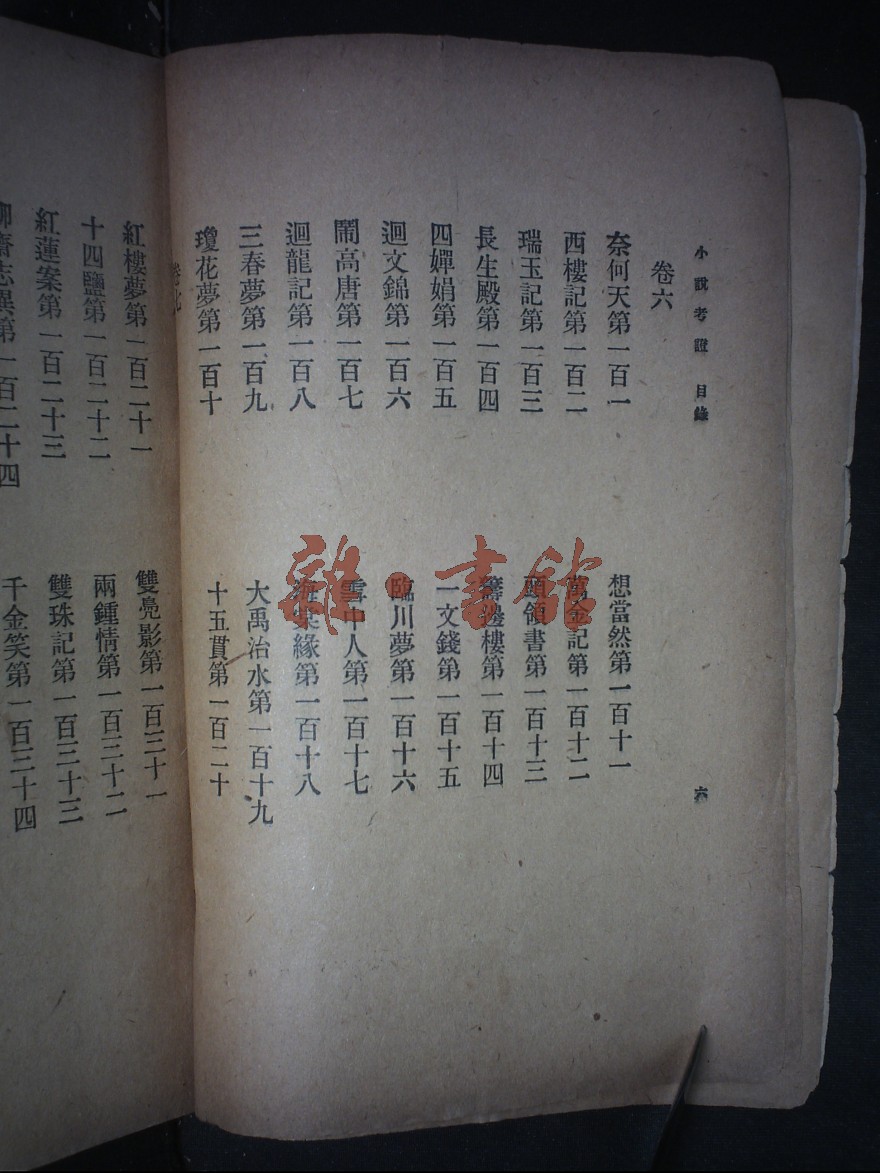 小說考證 目錄 六
卷六
奈何天第一百一
西樓記第一百二
瑞玉記第一百三
長生殿第一百四
四嬋娟第一百五
迴文錦第一百六
鬧高唐第一百七
迴龍記第一百八
三春夢第一百九
瓊花夢第一百十
想當然第一百十一
萬金記第一百十二
頭領書第一百十三
籌邊樓第一百十四
一文錢第一百十五
臨川夢第一百十六
雪中人第一百十七
海棠緣第一百十八
大禹治水第一百十九
十五貫第一百二十
卷七
紅樓夢第一百二十一
十四鹽第一百二十二
紅蓮案第一百二十三
聊齋志異第一百二十四
雙亮影第一百三十一
兩鍾情第一百三十二
雙珠記第一百三十三
千金笑第一百三十四
雜·書館